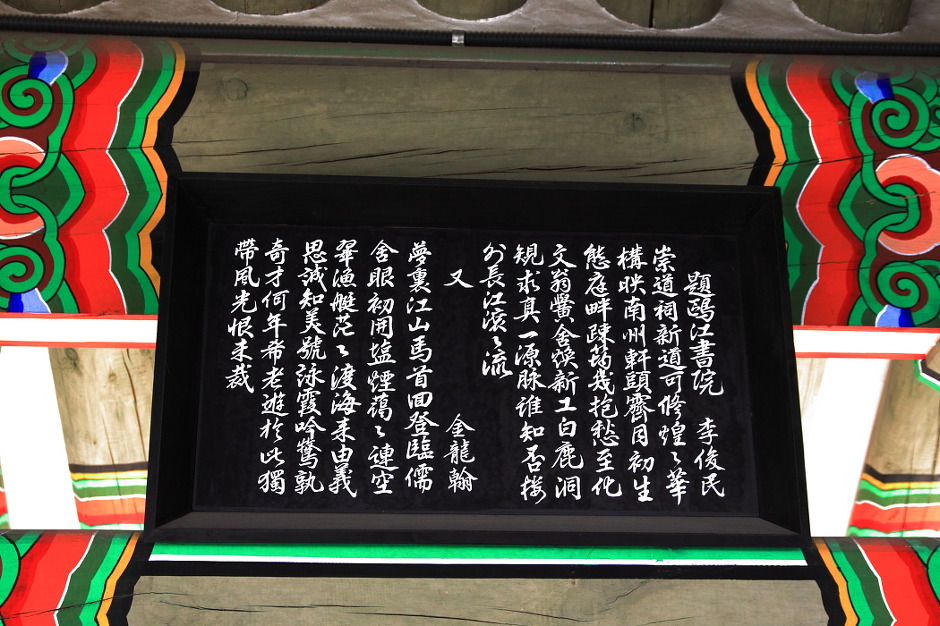 題鷗江書院 李俊民
崇道祠新道可修煌〻華
構映南州軒頭霽月初生
態庭畔疎筠幾抱愁至化
文翁黌舍煥新工白鹿洞
規求真一源脉誰知否樓
外長江滾〻流
又 金龍翰
夢裏江山馬首回登臨儒
舍眼初開塩煙藹〻連空
翠漁艇茫〻渡海来由義
思誠知美號詠霞吟鶩孰
奇才何年希老遊於此獨
帶風光恨未裁